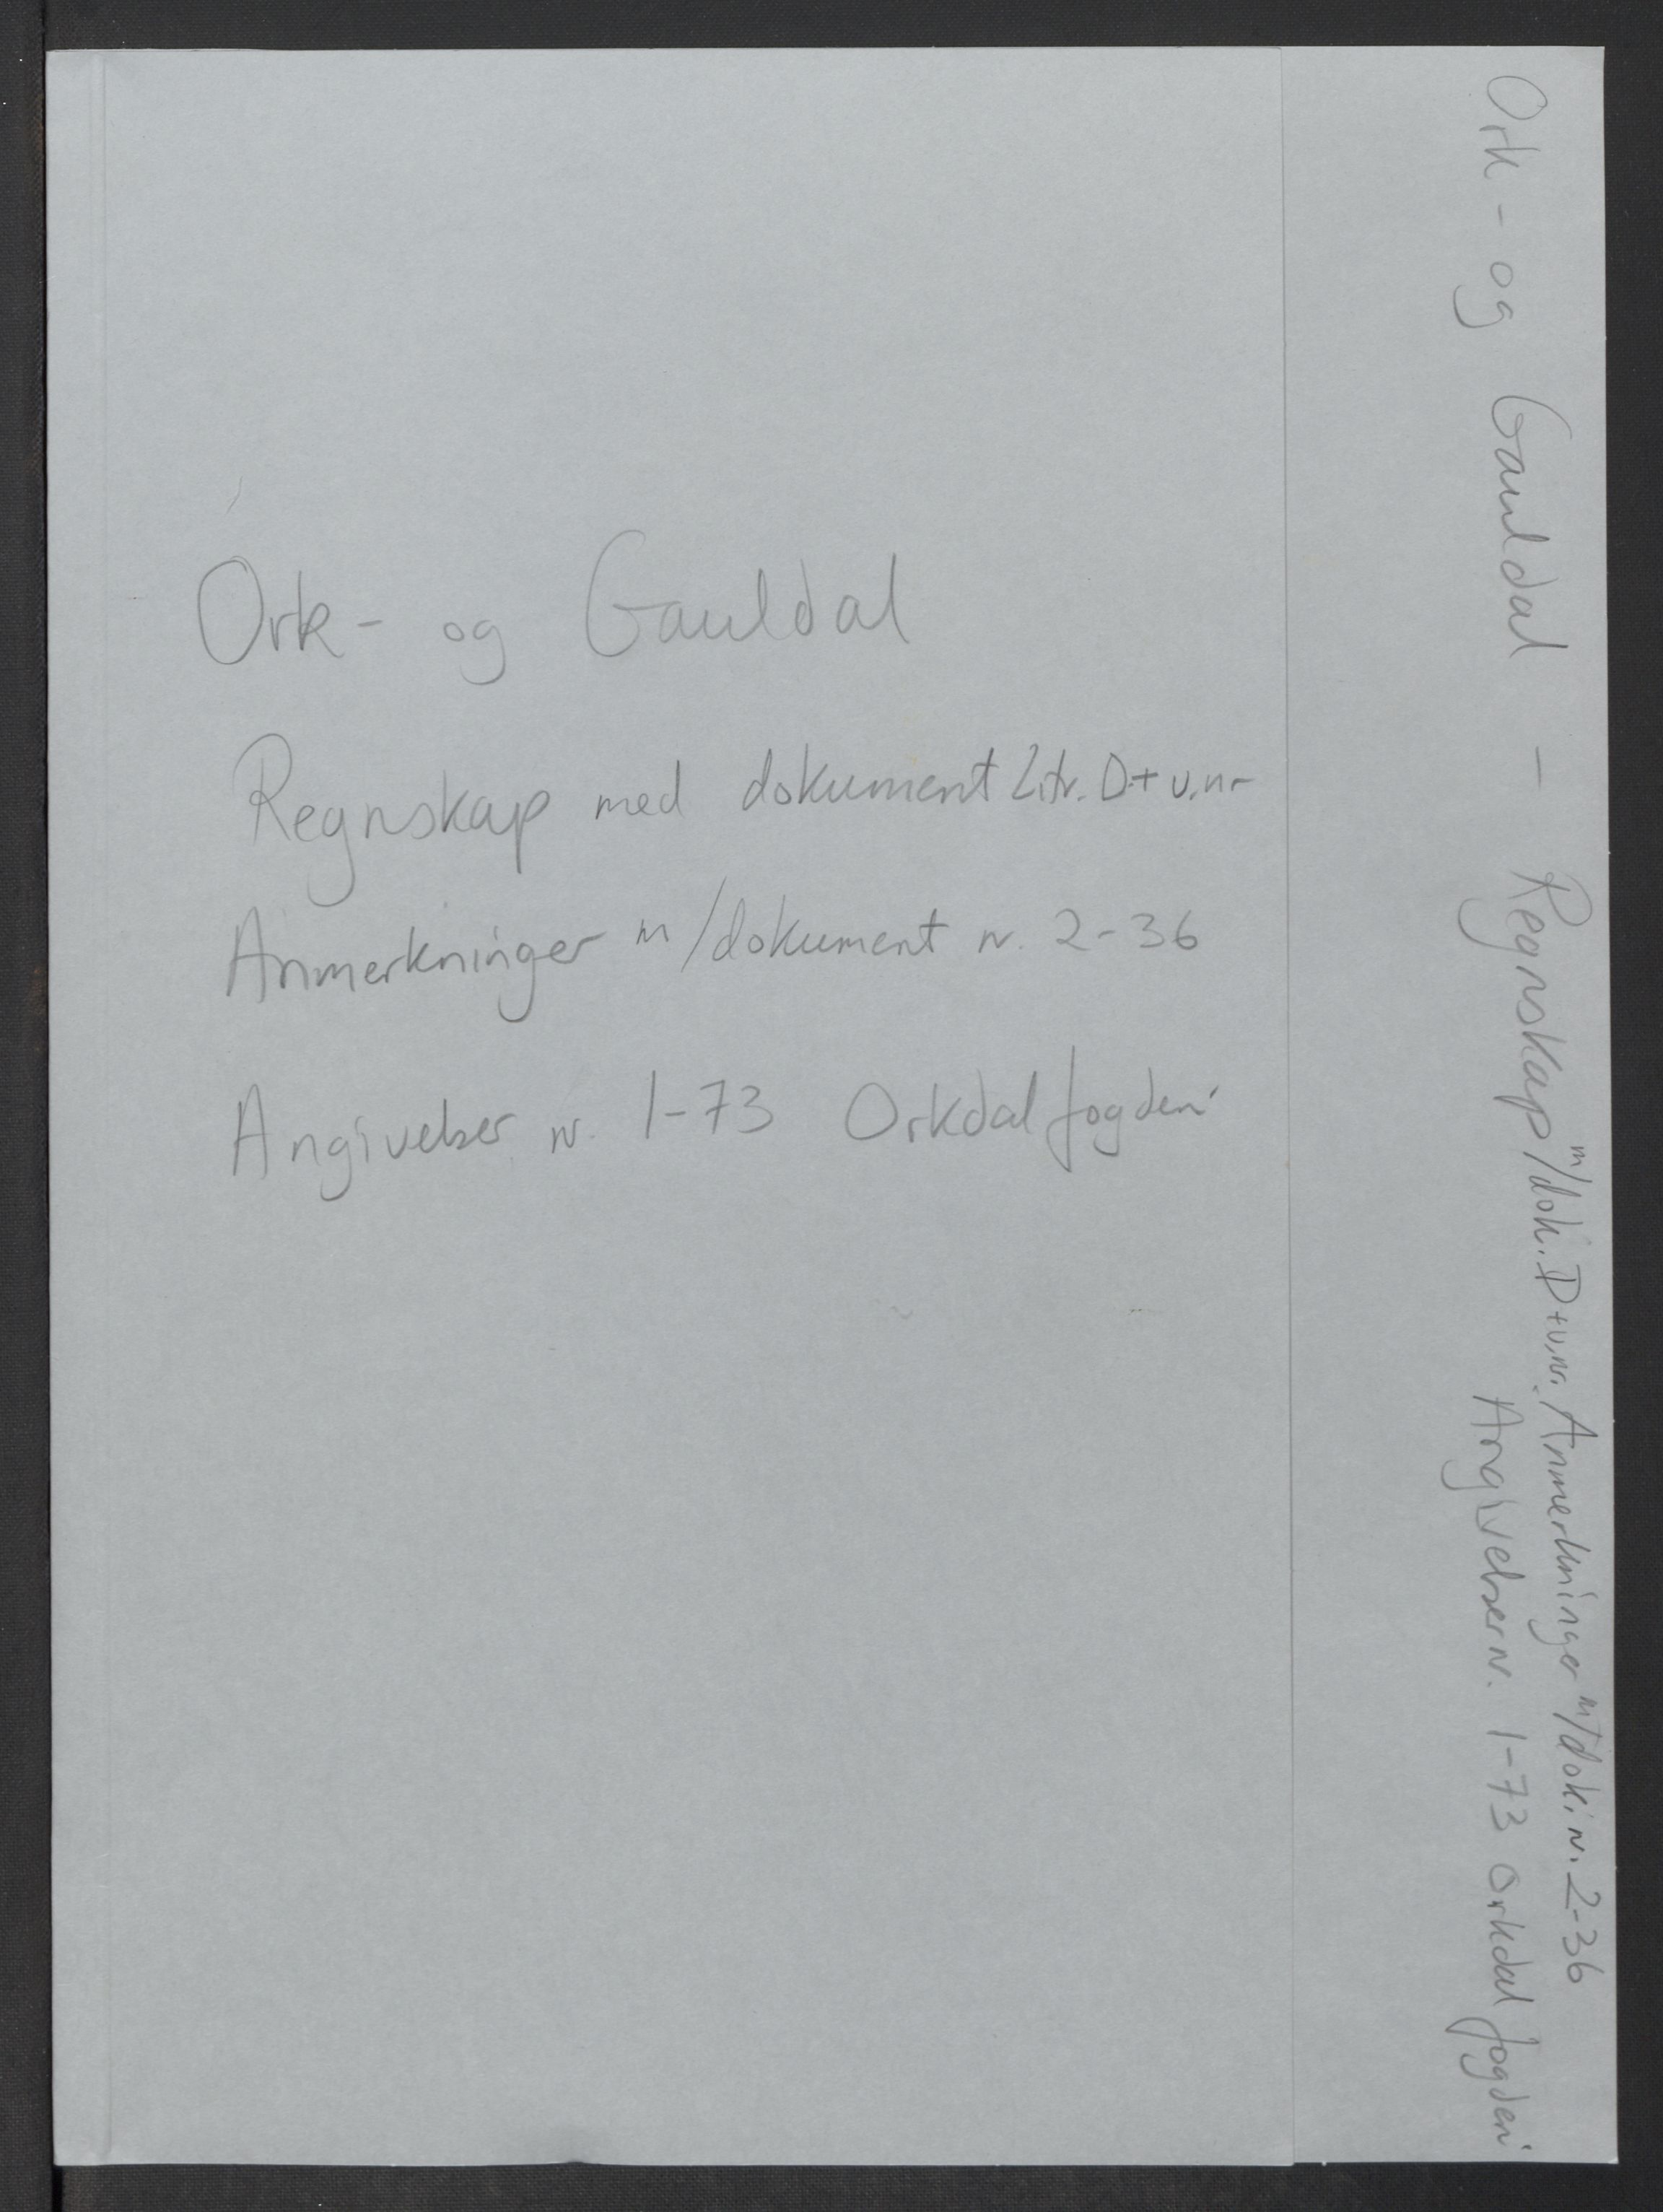 Ork- og Gauldal
Regnskap med dokument Litr. D + u.nr
Anmerkninger m/dokument nr. 2-36
Angivelser nr. 1-73 Orkdal fogderi
Ork- og Gauldal - Regnskap m/dok. D + u.nr. Anmerkninger m/dok. nr. 2-36
Angivelser nr. 1-73 Orkdal fogderi